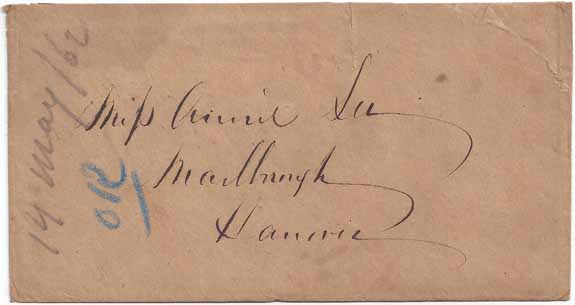 Miss Annie Lee
Marlbrough
Hanover
14 May/62
OK